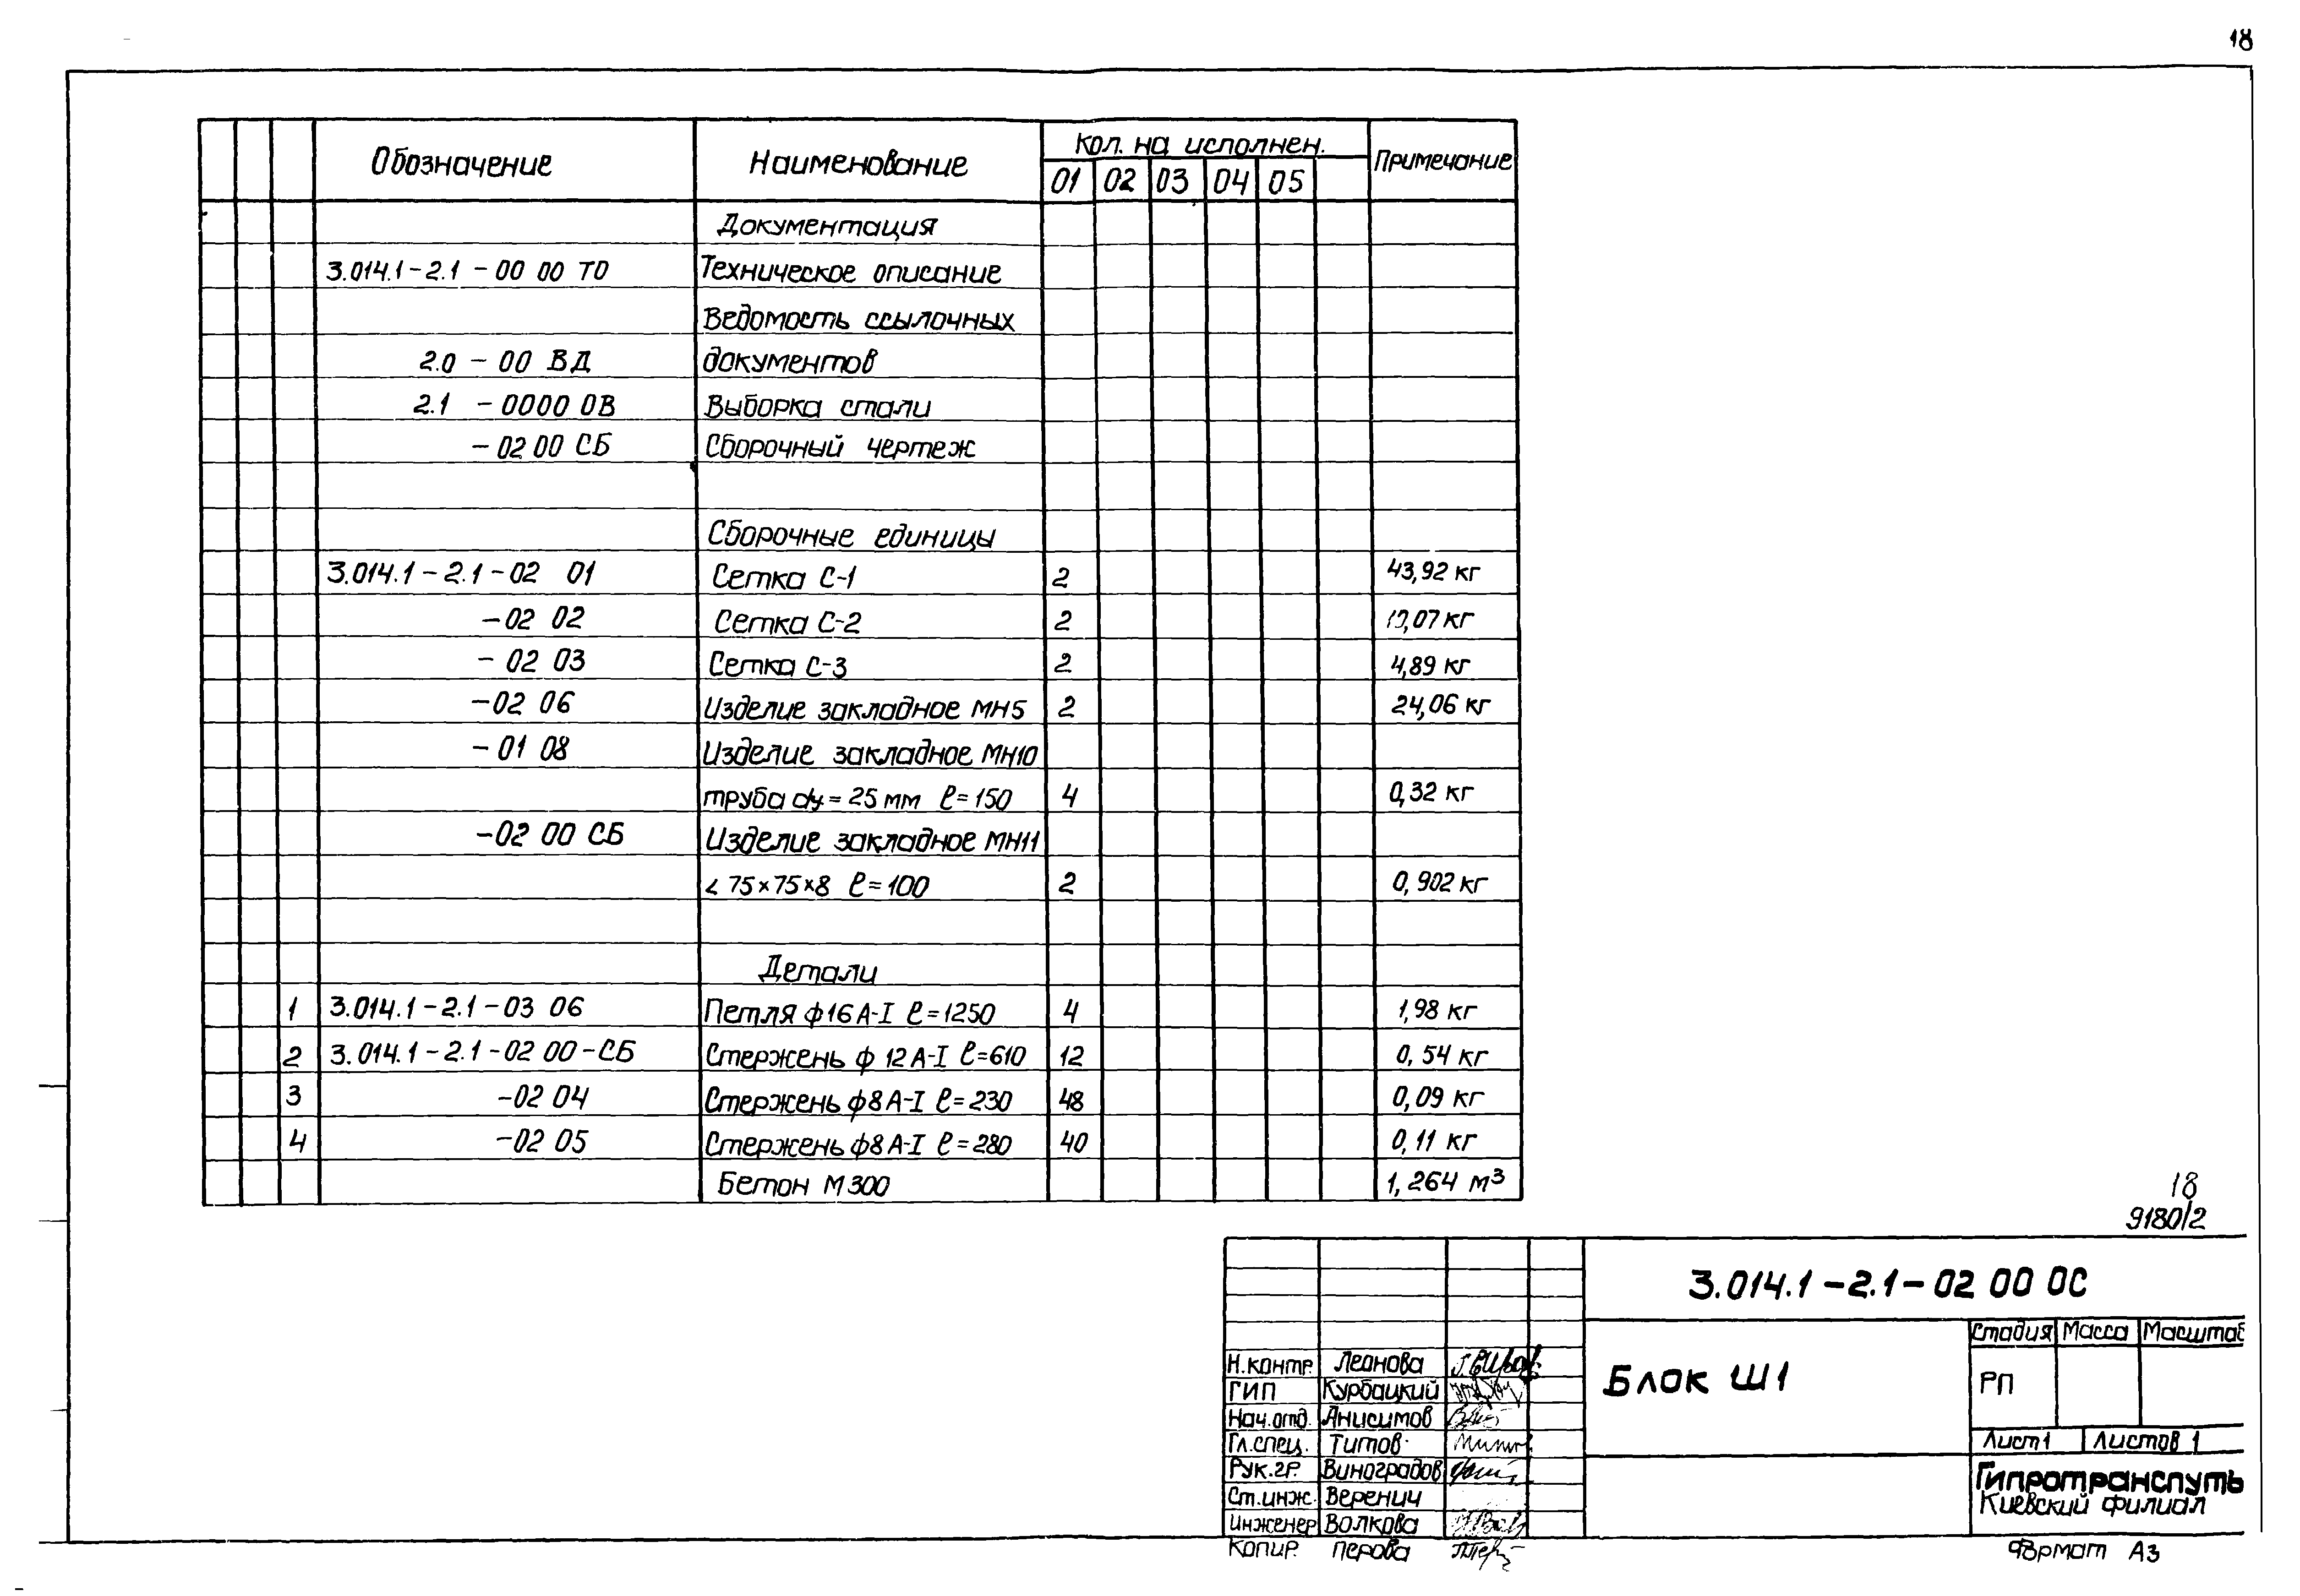 18
Обозначение Наименование Кол. на исполнен. Примечание
01 02 03 04 05
Документация
3.014.1-2.1-00 00 ТО Техническое описание
Ведомость ссылочных
2.0-00 ВД документов
2.1-0000 ОВ Выборка стали
-02 00 СБ Сборочный чертеж
Сборочные единицы
3.014.1-2.1-02 01 Сетка С-1 2 43,92 кг
-02 02 Сетка С-2 2
-02 03 Сетка С-3 2 4,89 кг
-02 06 Изделие закладное МН5 2 24,06 кг
-01 08 Изделие закладное МН10
труба dу=25 мм ℓ=150 4 0,32 кг
-02 00 СБ Изделие закладное МН11
∠ 75×75×8 ℓ=100 2 0,902 кг
Детали
1 3.014.1-2.1-03 06 Петля ф16 А-I ℓ=1250 4 1,98 кг
2 3.014.1-2.1-02 00-СБ Стержень ф 12 А-I ℓ=610 12 0,54 кг
3 -02 04 Стержень ф8 А-I ℓ=230 48 0,09 кг
4 -02 05 Стержень ф8 А-I ℓ=280 40 0,11 кг
Бетон М300 1,264 м³
18
9180/2
3.014.1-2.1-02 00 ОС
Блок Ш1
Стадия Масса Масштаб
РП
Лист 1 Листов 1
Гипротранспуть
Киевский филиал
Н.контр. Леонова
ГИП Курбацкий
Нач.отд. Анисимов
Гл.спец. Титов
Рук.гр. Виноградов
Ст.инж. Веренич
Инженер Волкова
Копир. Перова
Формат А3